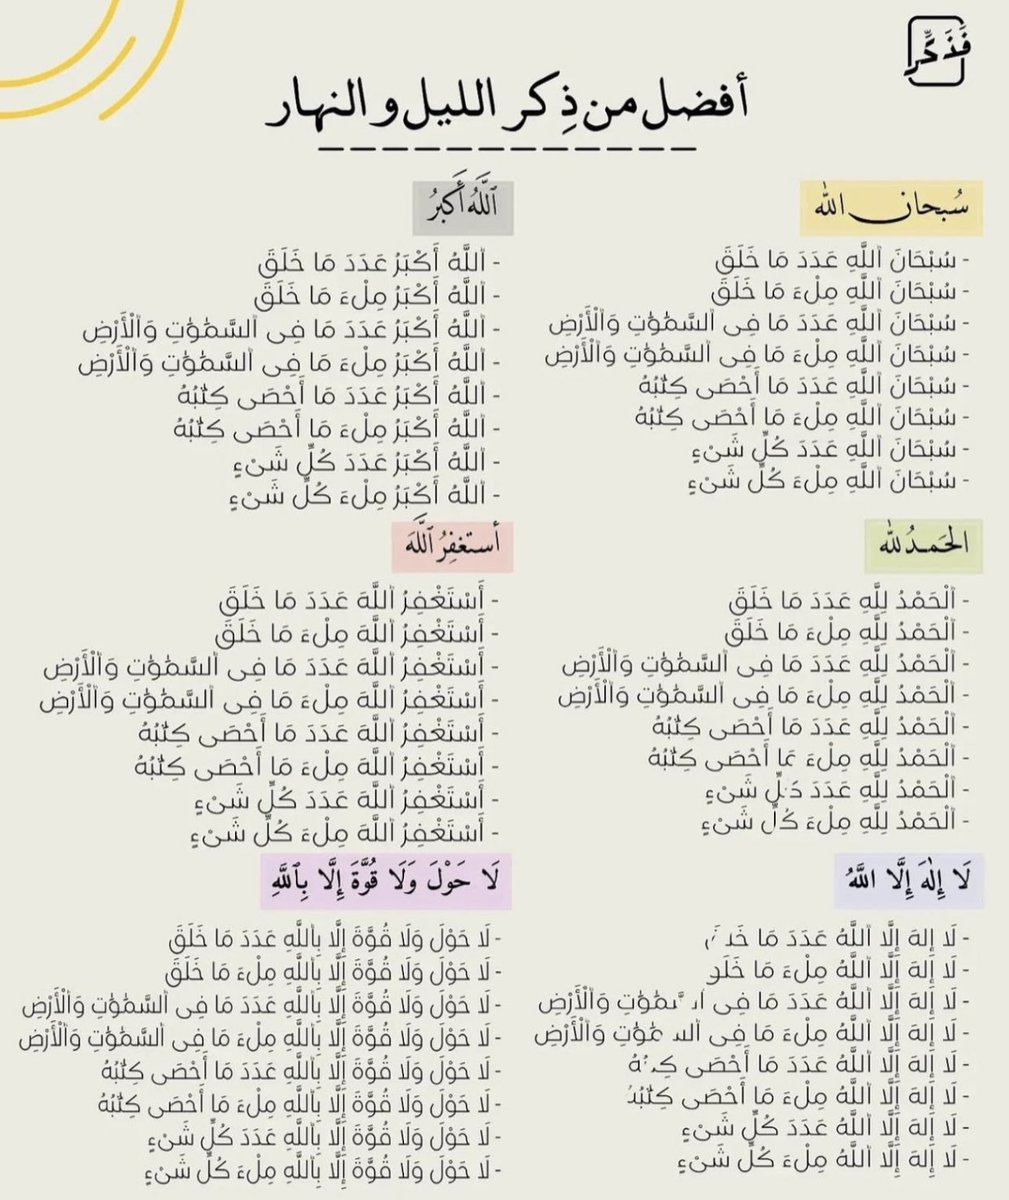 فَذَكِّر
أفضل من ذِكر الليل و النهار
سُبحان الله
- سُبْحَانَ ٱللَّهِ عَدَدَ مَا خَلَقَ
- سُبْحَانَ ٱللَّهِ مِلْءَ مَا خَلَقَ
- سُبْحَانَ ٱللَّهِ عَدَدَ مَا فِى ٱلسَّمَٰوَٰتِ وَٱلْأَرْضِ
- سُبْحَانَ ٱللَّهِ مِلْءَ مَا فِى ٱلسَّمَٰوَٰتِ وَٱلْأَرْضِ
- سُبْحَانَ ٱللَّهِ عَدَدَ مَا أَحْصَى كِتَٰبُهُ
- سُبْحَانَ ٱللَّهِ مِلْءَ مَا أَحْصَى كِتَٰبُهُ
- سُبْحَانَ ٱللَّهِ عَدَدَ كُلِّ شَىْءٍ
- سُبْحَانَ ٱللَّهِ مِلْءَ كُلِّ شَىْءٍ
ٱللَّهُ أَكْبَرُ
- ٱللَّهُ أَكْبَرُ عَدَدَ مَا خَلَقَ
- ٱللَّهُ أَكْبَرُ مِلْءَ مَا خَلَقَ
- ٱللَّهُ أَكْبَرُ عَدَدَ مَا فِى ٱلسَّمَٰوَٰتِ وَٱلْأَرْضِ
- ٱللَّهُ أَكْبَرُ مِلْءَ مَا فِى ٱلسَّمَٰوَٰتِ وَٱلْأَرْضِ
- ٱللَّهُ أَكْبَرُ عَدَدَ مَا أَحْصَى كِتَٰبُهُ
- ٱللَّهُ أَكْبَرُ مِلْءَ مَا أَحْصَى كِتَٰبُهُ
- ٱللَّهُ أَكْبَرُ عَدَدَ كُلِّ شَىْءٍ
- ٱللَّهُ أَكْبَرُ مِلْءَ كُلِّ شَىْءٍ
الحَمدُ لله
- ٱلْحَمْدُ لِلَّهِ عَدَدَ مَا خَلَقَ
- ٱلْحَمْدُ لِلَّهِ مِلْءَ مَا خَلَقَ
- ٱلْحَمْدُ لِلَّهِ عَدَدَ مَا فِى ٱلسَّمَٰوَٰتِ وَٱلْأَرْضِ
- ٱلْحَمْدُ لِلَّهِ مِلْءَ مَا فِى ٱلسَّمَٰوَٰتِ وَٱلْأَرْضِ
- ٱلْحَمْدُ لِلَّهِ عَدَدَ مَا أَحْصَى كِتَٰبُهُ
- ٱلْحَمْدُ لِلَّهِ مِلْءَ مَا أَحْصَى كِتَٰبُهُ
- ٱلْحَمْدُ لِلَّهِ عَدَدَ كُلِّ شَىْءٍ
- ٱلْحَمْدُ لِلَّهِ مِلْءَ كُلِّ شَىْءٍ
أستغفِرُ ٱللَّهَ
- أَسْتَغْفِرُ ٱللَّهَ عَدَدَ مَا خَلَقَ
- أَسْتَغْفِرُ ٱللَّهَ مِلْءَ مَا خَلَقَ
- أَسْتَغْفِرُ ٱللَّهَ عَدَدَ مَا فِى ٱلسَّمَٰوَٰتِ وَٱلْأَرْضِ
- أَسْتَغْفِرُ ٱللَّهَ مِلْءَ مَا فِى ٱلسَّمَٰوَٰتِ وَٱلْأَرْضِ
- أَسْتَغْفِرُ ٱللَّهَ عَدَدَ مَا أَحْصَى كِتَٰبُهُ
- أَسْتَغْفِرُ ٱللَّهَ مِلْءَ مَا أَحْصَى كِتَٰبُهُ
- أَسْتَغْفِرُ ٱللَّهَ عَدَدَ كُلِّ شَىْءٍ
- أَسْتَغْفِرُ ٱللَّهَ مِلْءَ كُلِّ شَىْءٍ
لَا إِلَٰهَ إِلَّا اللَّهُ
- لَا إِلهَ إِلَّا ٱللَّهُ عَدَدَ مَا خَلَقَ
- لَا إِلهَ إِلَّا ٱللَّهُ مِلْءَ مَا خَلَقَ
- لَا إِلهَ إِلَّا ٱللَّهُ عَدَدَ مَا فِى ٱلسَّمَٰوَٰتِ وَٱلْأَرْضِ
- لَا إِلهَ إِلَّا ٱللَّهُ مِلْءَ مَا فِى ٱلسَّمَٰوَٰتِ وَٱلْأَرْضِ
- لَا إِلهَ إِلَّا ٱللَّهُ عَدَدَ مَا أَحْصَى كِتَٰبُهُ
- لَا إِلهَ إِلَّا ٱللَّهُ مِلْءَ مَا أَحْصَى كِتَٰبُهُ
- لَا إِلهَ إِلَّا ٱللَّهُ عَدَدَ كُلِّ شَىْءٍ
- لَا إِلهَ إِلَّا ٱللَّهُ مِلْءَ كُلِّ شَىْءٍ
لَا حَوْلَ وَلَا قُوَّةَ إِلَّا بِٱللَّهِ
- لَا حَوْلَ وَلَا قُوَّةَ إِلَّا بِٱللَّهِ عَدَدَ مَا خَلَقَ
- لَا حَوْلَ وَلَا قُوَّةَ إِلَّا بِٱللَّهِ مِلْءَ مَا خَلَقَ
- لَا حَوْلَ وَلَا قُوَّةَ إِلَّا بِٱللَّهِ عَدَدَ مَا فِى ٱلسَّمَٰوَٰتِ وَٱلْأَرْضِ
- لَا حَوْلَ وَلَا قُوَّةَ إِلَّا بِٱللَّهِ مِلْءَ مَا فِى ٱلسَّمَٰوَٰتِ وَٱلْأَرْضِ
- لَا حَوْلَ وَلَا قُوَّةَ إِلَّا بِٱللَّهِ عَدَدَ مَا أَحْصَى كِتَٰبُهُ
- لَا حَوْلَ وَلَا قُوَّةَ إِلَّا بِٱللَّهِ مِلْءَ مَا أَحْصَى كِتَٰبُهُ
- لَا حَوْلَ وَلَا قُوَّةَ إِلَّا بِٱللَّهِ عَدَدَ كُلِّ شَىْءٍ
- لَا حَوْلَ وَلَا قُوَّةَ إِلَّا بِٱللَّهِ مِلْءَ كُلِّ شَىْءٍ